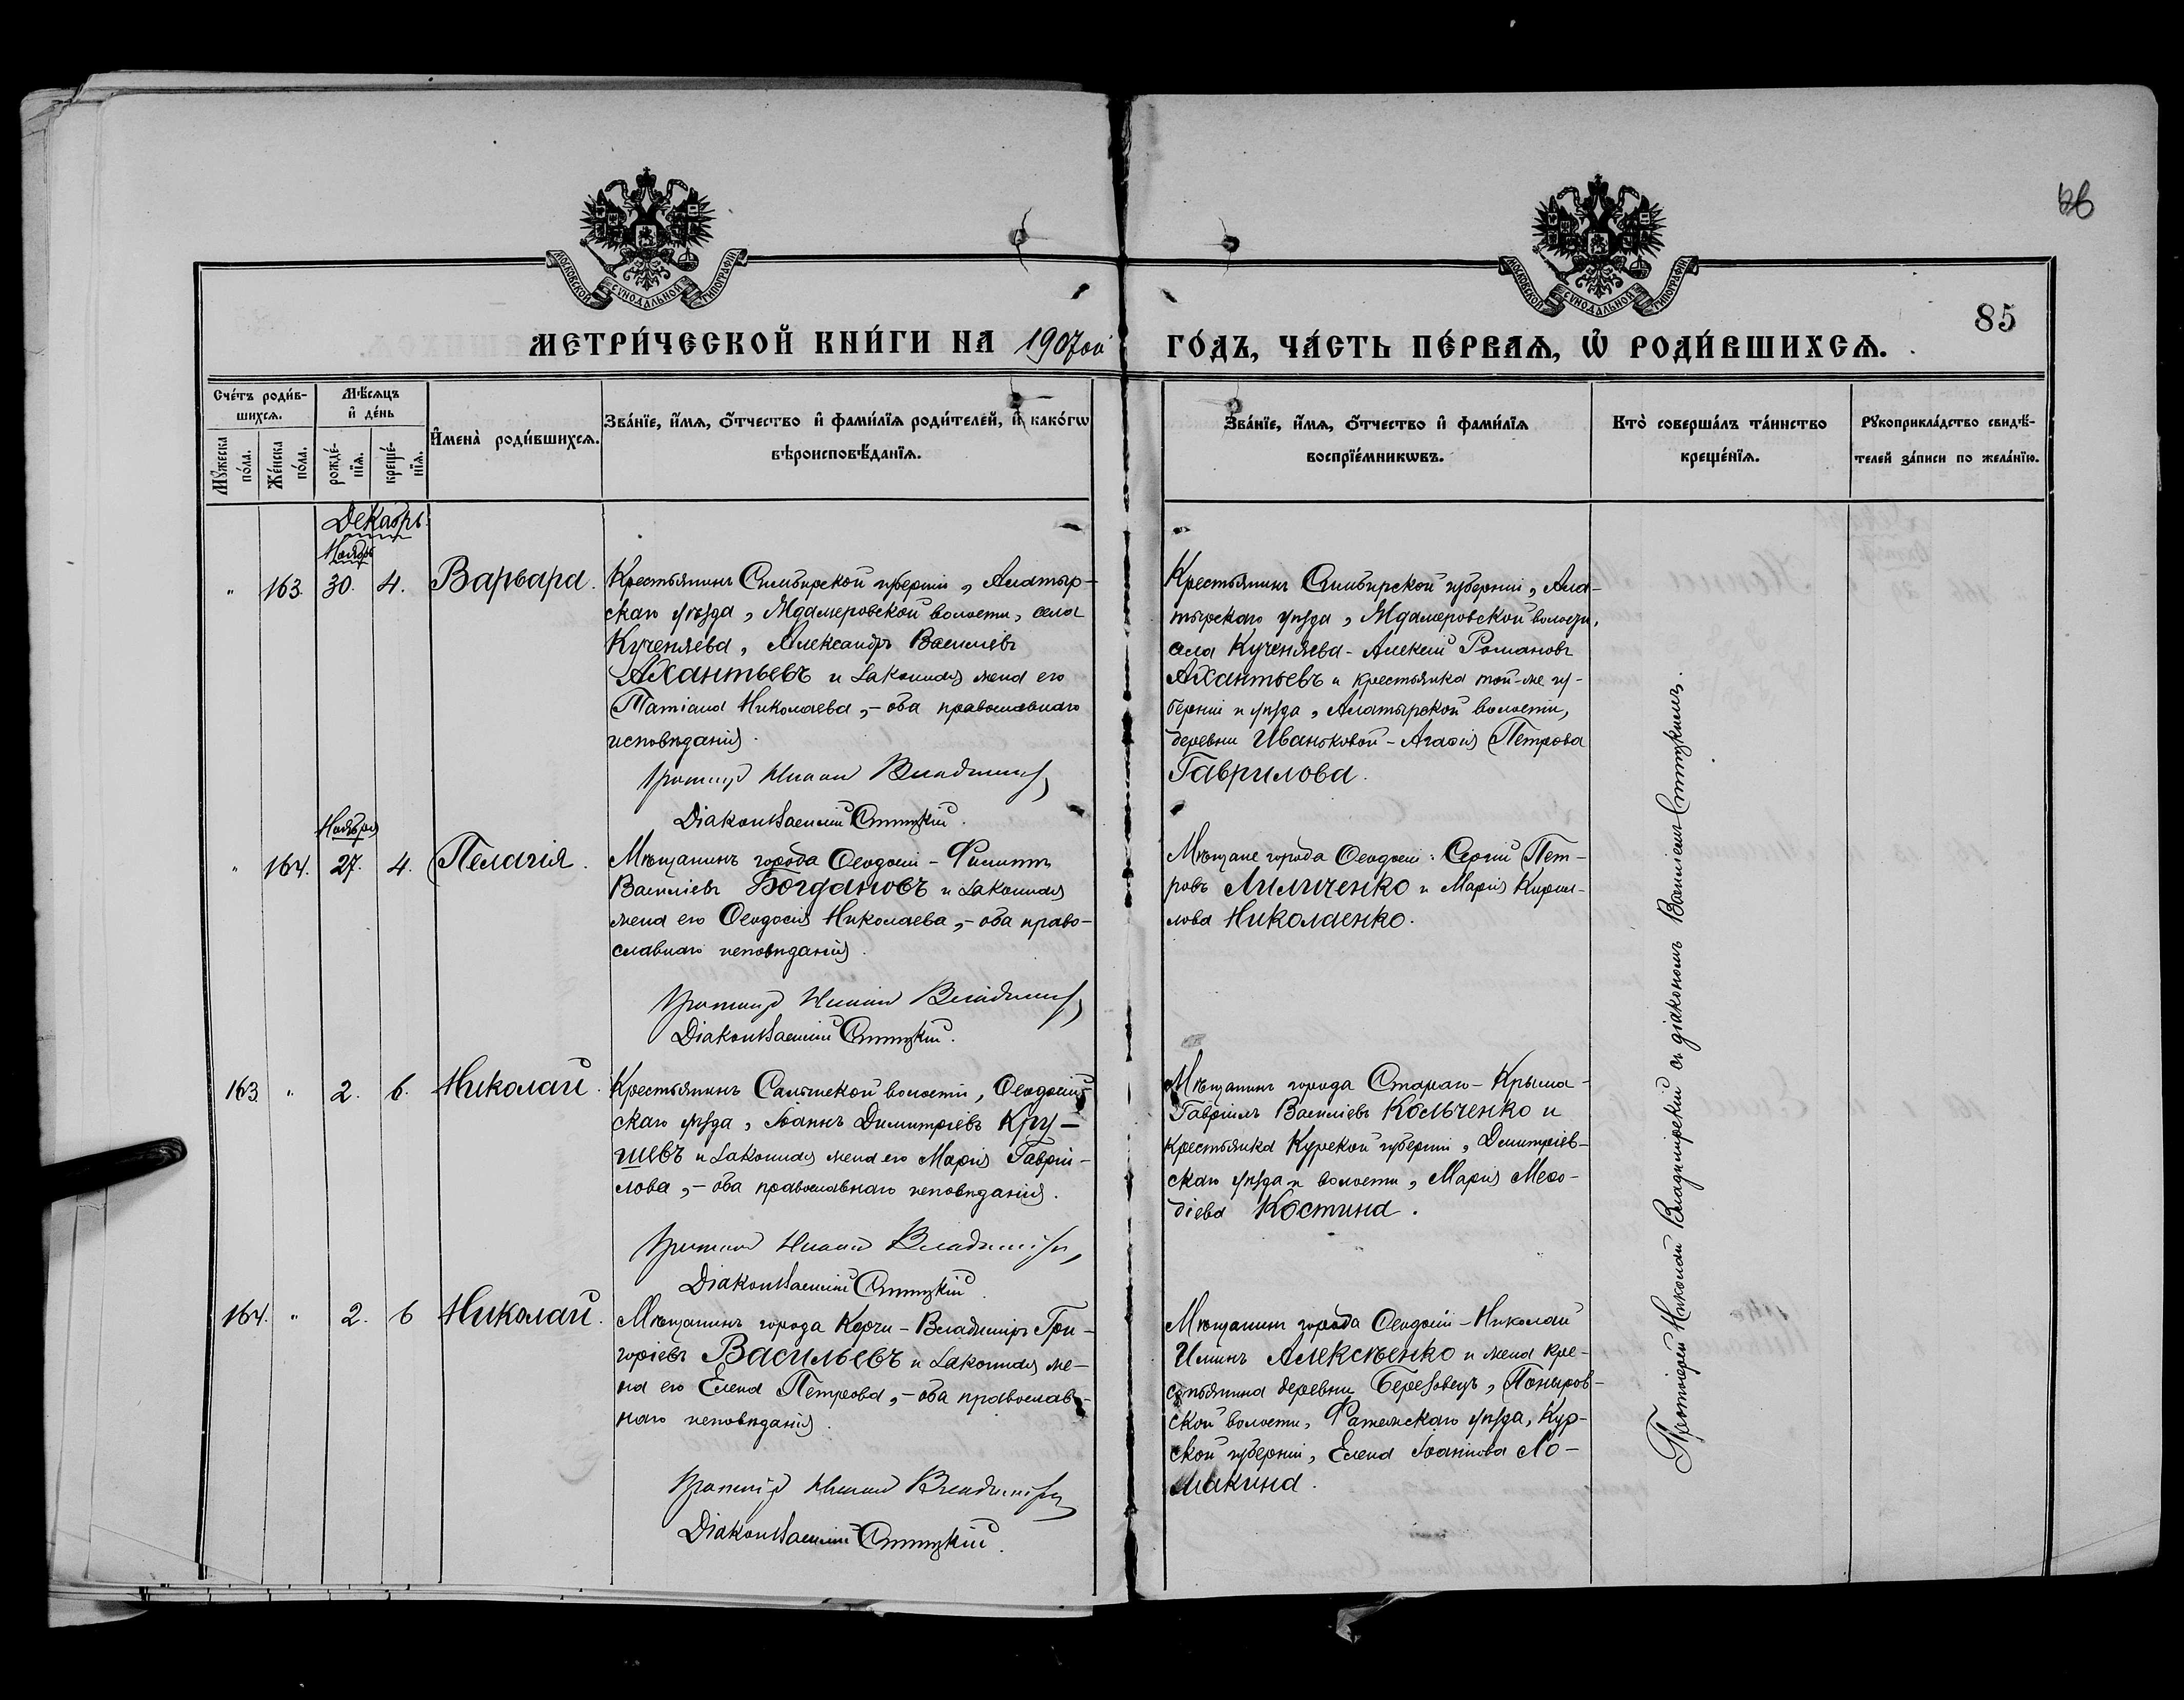 86
МОСКОВСКОЙ СѴНОДАЛЬНОЙ ТИПОГРАФІИ
МОСКОВСКОЙ СѴНОДАЛЬНОЙ ТИПОГРАФІИ
85
МЕТРИ́ЧЕСКОЙ КНИ́ГИ НА 1907ой ГО́ДЪ, ЧА́СТЬ ПЕ́РВАѦ, Ѡ҆ РОДИ́ВШИХСѦ.
Сче́тъ роди́в-
шихсѧ.
Мꙋжеска по́ла.
Же́нска по́ла.
Мѣ́сѧцъ
и҆ де́нь
рожде́-
нїѧ.
креще́-
нїѧ.
И҆мена̀ роди́вшихсѧ.
Зва́нїе, и҆́мѧ, ѻ҆́тчество и҆ фами́лїѧ роди́телей, и҆ како́гѡ
вѣроисповѣ́данїѧ.
Зва́нїе, и҆́мѧ, ѻ҆́тчество и҆ фами́лїѧ
воспрїе́мникѡвъ.
Кто̀ соверша́лъ та́инство
креще́нїѧ.
Рꙋкоприкла́дство свидѣ́-
телей за́писи по жела́нїю.
Декабрь
Ноябрь
" 163. 30. 4. Варвара.
Крестьянинъ Симбирской губерніи, Алатыр-
скаго уѣзда, Мдамеровской волости, села
Кученяева, Александръ Василіевъ
Ахантьевъ и законная жена его
Татіана Николаева, - оба православнаго
исповѣданія.
Николай Владимірскій
Діаконъ Василій
Крестьянинъ Симбирской губерніи, Ала-
тырскаго уѣзда, Мдамеровской волости,
села Кученяева - Алексій Романовъ
Ахантьевъ и крестьянка той-же гу-
берніи и уѣзда, Алатырской волости,
деревни Иваньковой - Агафія Петрова
Гаврилова.
Ноября
" 164. 27. 4. Пелагія.
Мѣщанинъ города Ѳеодосіи - Филиппъ
Василіевъ Богдановъ и законная
жена его Ѳеодосія Николаева, - оба право-
славнаго исповѣданія.
Николай Владимірскій
Діаконъ Василій
Мѣщане города Ѳеодосіи: Сергій Пет-
ровъ Лиличенко и Марія Кирил-
лова Николаенко.
163 " 2. 6. Николай.
Крестьянинъ Салынской волости, Ѳеодосій-
скаго уѣзда, Іоаннъ Димитріевъ Кру-
шевъ и законная жена его Марія Гаврії-
лова, - оба православнаго исповѣданія.
Николай Владимірскій,
Діаконъ Василій
Мѣщанинъ города Стараго-Крыма -
Гавріилъ Василіевъ Кольченко и
крестьянка Курской губерніи, Димитріев-
скаго уѣзда и волости, Марія Меѳо-
діева Костина.
164. " 2. 6 Николай.
Мѣщанинъ города Керчи - Владиміръ Гри-
горіевъ Васильевъ и законная же-
на его Елена Петрова, - оба православ-
наго исповѣданія.
Николай Владимірскій
Діаконъ Василій
Мѣщанинъ города Ѳеодосіи - Николай
Ильинъ Алексѣенко и жена кре-
стьянина деревни Березовецъ, Поныров-
ской волости, Фатежскаго уѣзда, Кур-
ской губерніи, Елена Іоаннова Ло-
макина.
Протоіерей Николай Владимірскій съ діакономъ Василіемъ